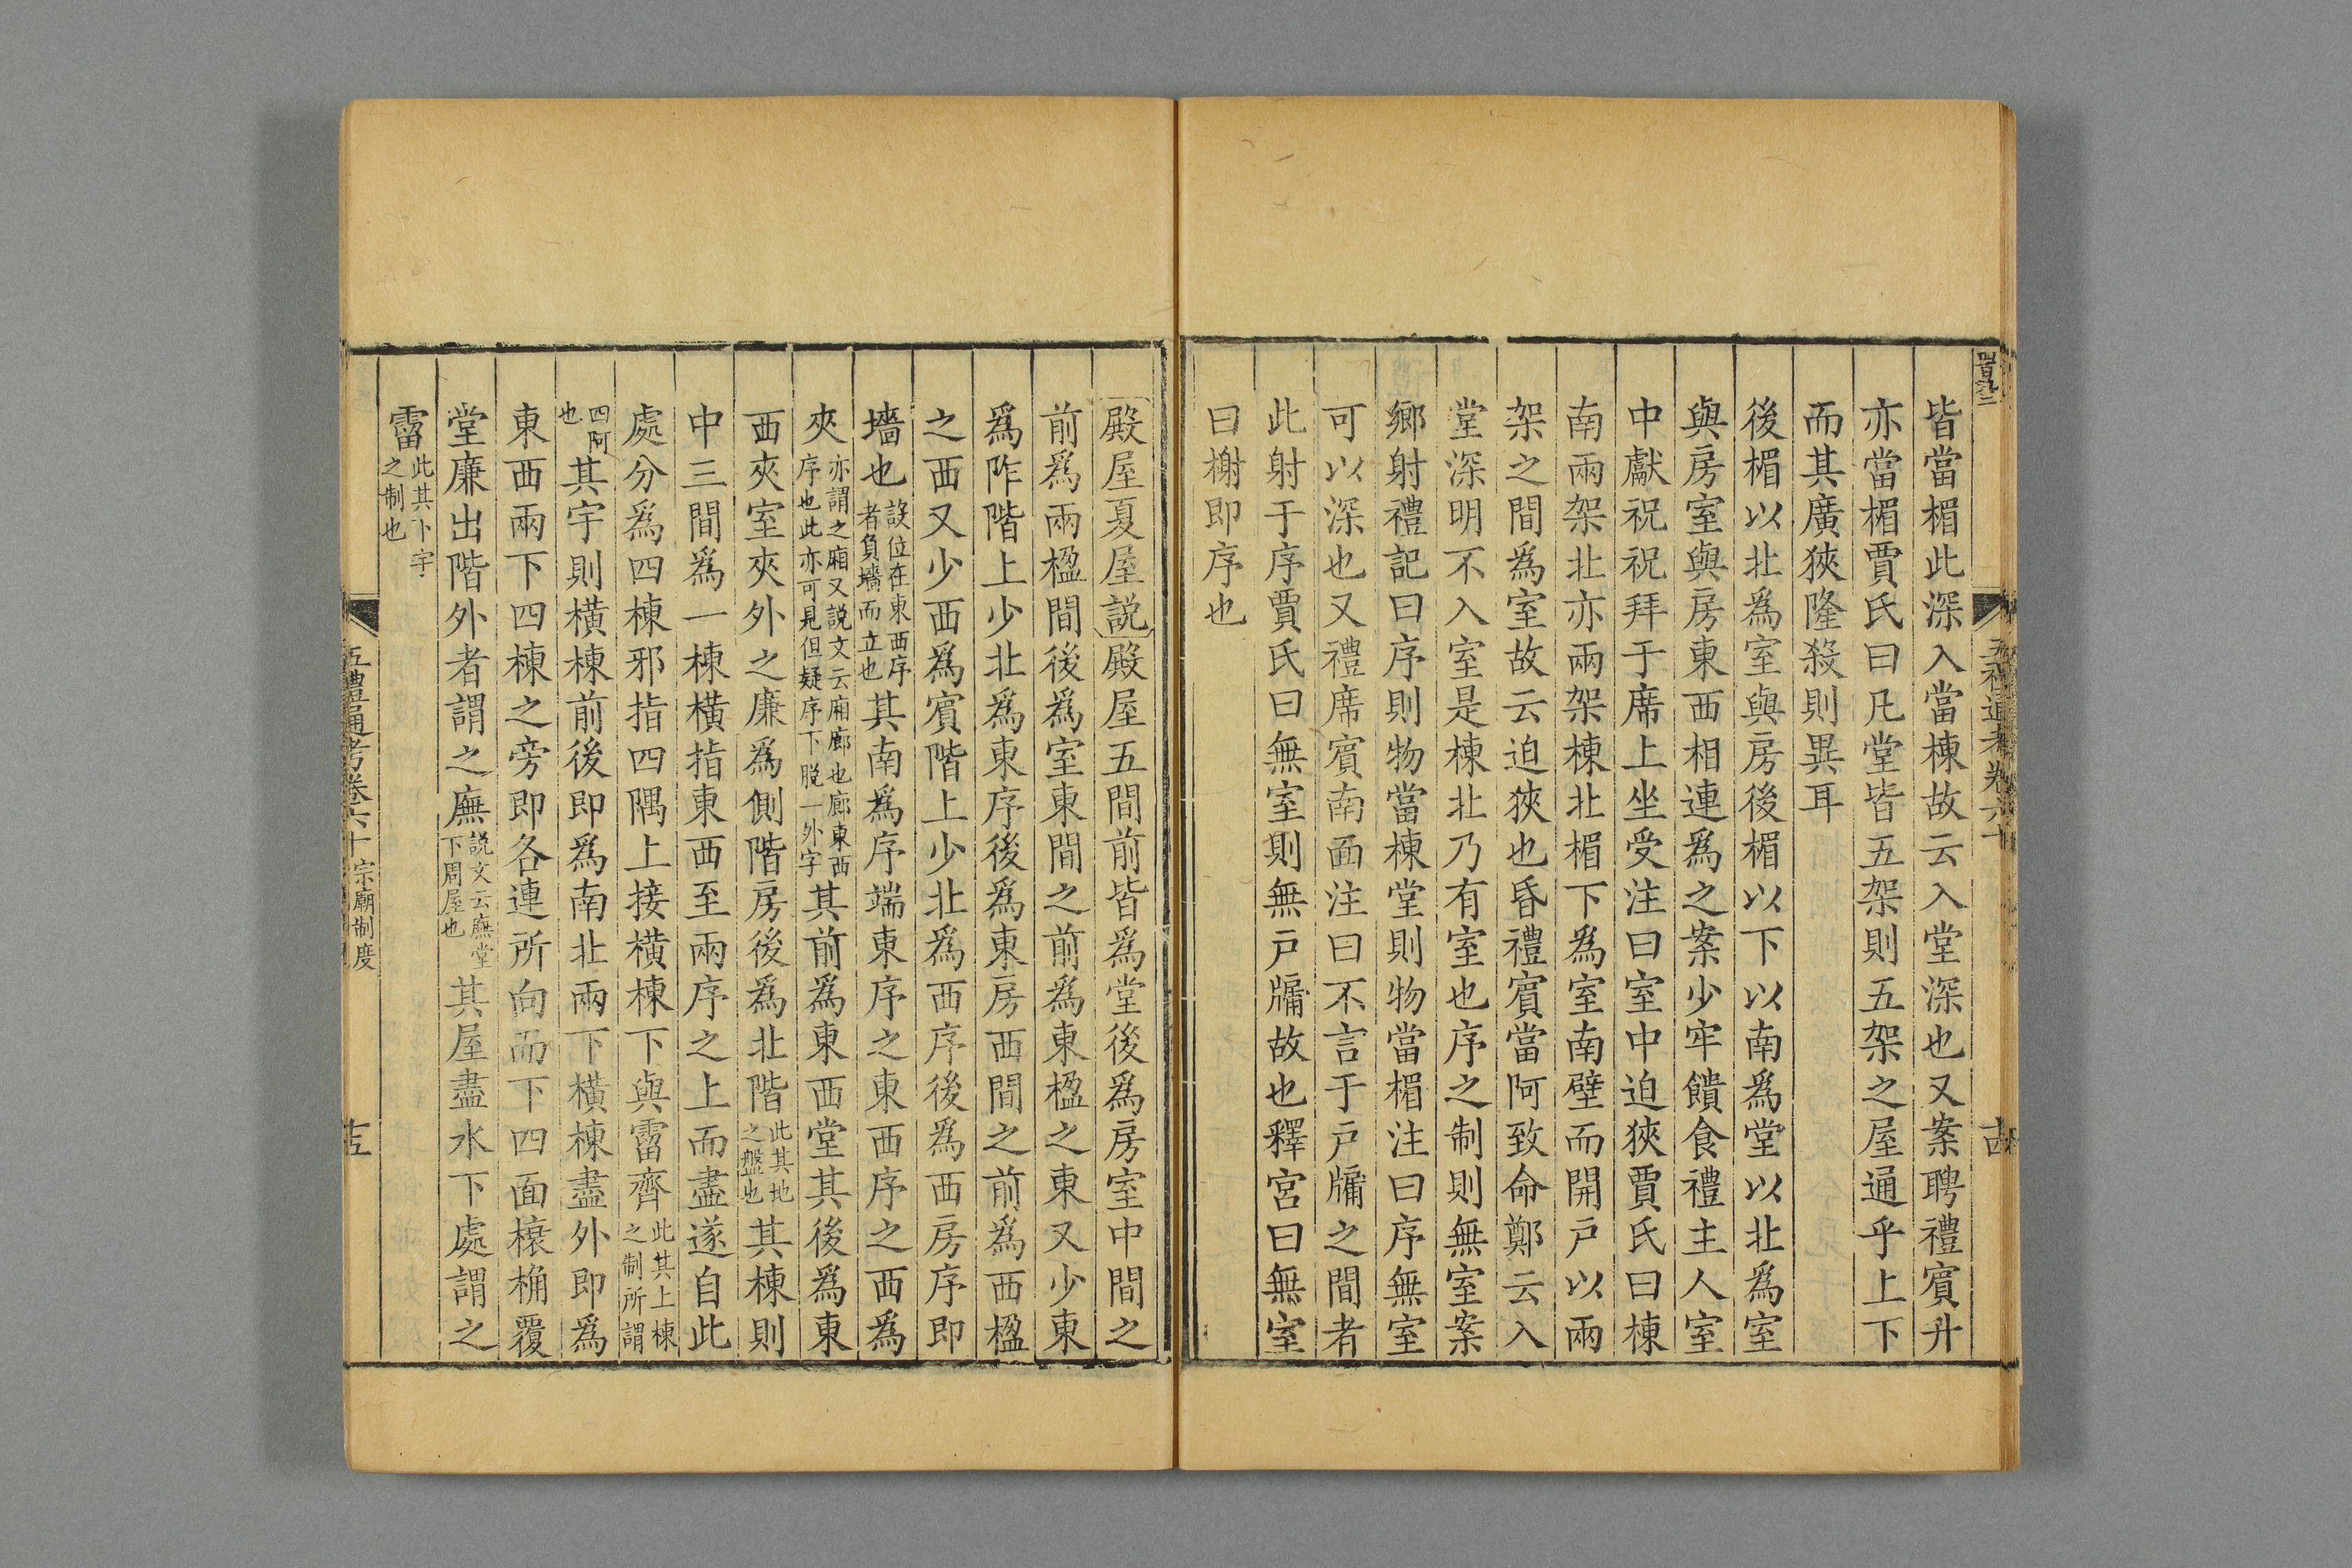 皆當楣此深入當棟故云入堂深也又案聘禮賓升
亦當楣賈氏曰凡堂皆五架則五架之屋通乎上下
而其廣狹隆殺則異耳
後楣以北爲室與房後楣以下以南爲堂以北爲室
與房室與房東西相連爲之案少牢饋食禮主人室
中獻祝祝拜于席上坐受注曰室中迫狹賈氏曰棟
南兩架北亦兩架棟北楣下爲室南壁而開戸以兩
架之間爲室故云迫狹也昏禮賓當阿致命鄭云入
堂深明不入室是棟北乃有室也序之制則無室案
鄉射禮記曰序則物當棟堂則物當楣注曰序無室
可以深也又禮席賓南面注曰不言于戸牖之間者
此射于序賈氏曰無室則無戸牖故也釋宮曰無室
曰榭即序也
殿屋夏屋説殿屋五間前皆爲堂後爲房室中間之
前爲兩楹間後爲室東間之前爲東楹之東又少東
爲阼階上少北爲東序後爲東房西間之前爲西楹
之西又少西爲賓階上少北爲西序後爲西房序即
墻也設位在東西序者負墻而立也其南爲序端東序之東西序之西爲
夾亦謂之廂又説文云廂廊也廊東西序也此亦可見但疑序下脱一外字其前爲東西堂其後爲東
西夾室夾外之廉爲側階房後爲北階此其地之盤也其棟則
中三間爲一棟橫指東西至兩序之上而盡遂自此
處分爲四棟邪指四隅上接橫棟下與霤齊此其上棟之制所謂
四阿也其宇則橫棟前後即爲南北兩下橫棟盡外即爲
東西兩下四棟之旁即各連所向而下四面榱桷覆
堂廉出階外者謂之廡説文云廡堂下周屋也其屋盡水下處謂之
霤此其下宇之制也
五禮通考卷六十 宗廟制度 十五